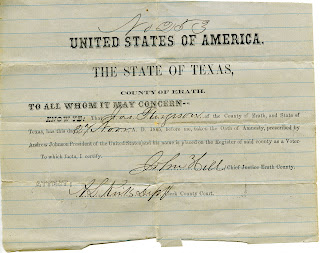 No 253
UNITED STATES OF AMERICA.
THE STATE OF TEXAS,
COUNTY OF ERATH.
TO ALL WHOM IT MAY CONCERN--
KNOW YE: That of the County of Erath, and State of
Texas, has this day A. D. 1865, before me, taken the Oath of Amnesty, prescribed by
Andrew Johnson President of the United States; and his name is placed on the Register of said county as a Voter
To which facts, I certify.
John Hill Chief Justice Erath County.
ATTEST:
Clerk County Court.